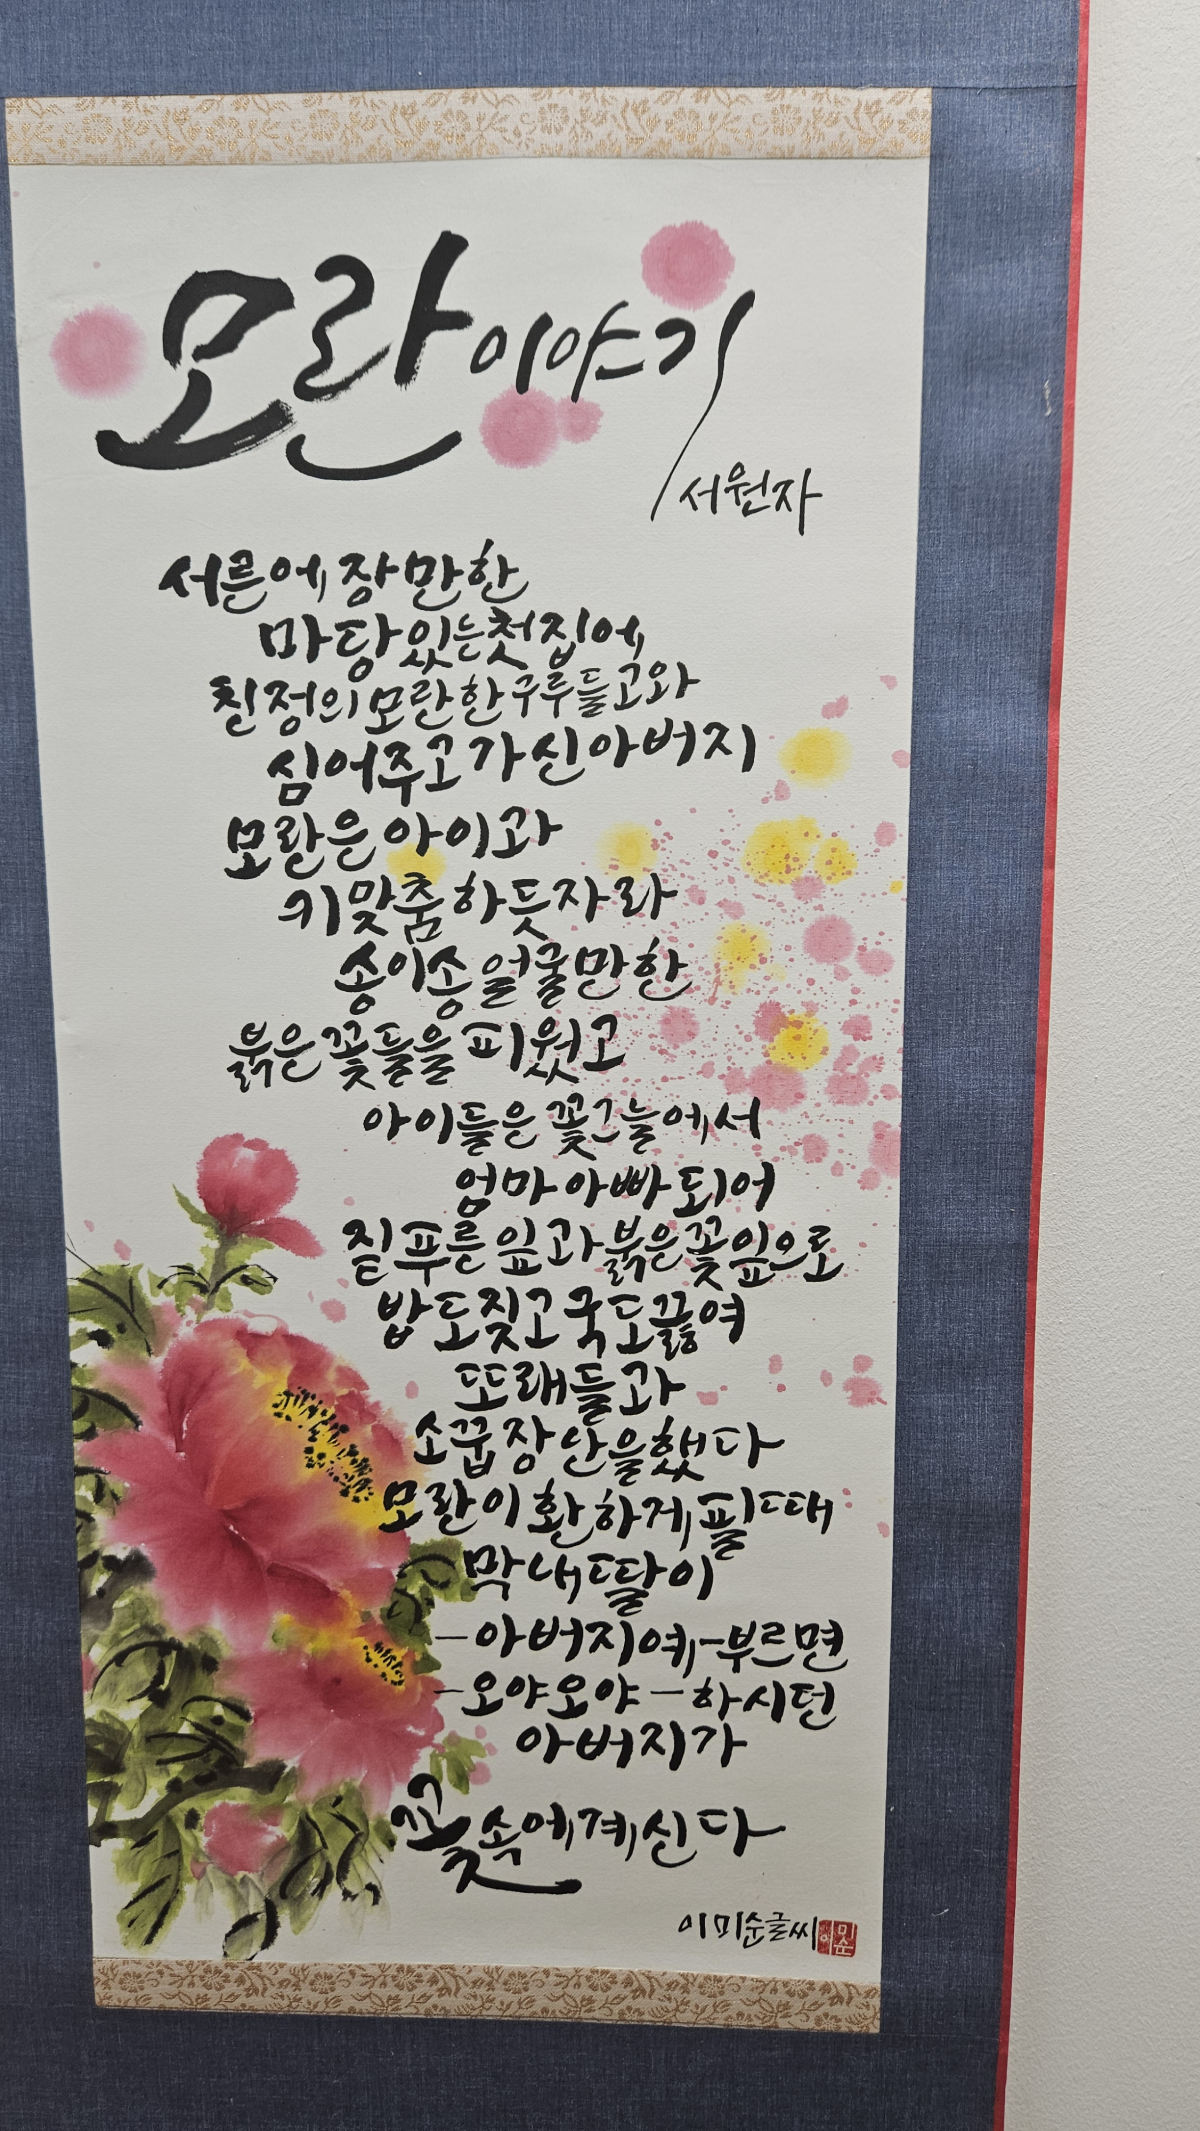 모란이야기
서원자
서른에 장만한
마당있는 첫집에
친정의 모란 한 구루 들고와
심어주고 가신 아버지
모란은 아이과
키맞춤 하듯 자라
송이송 얼굴만한
붉은 꽃들을 피웠고
아이들은 꽃그늘에서
엄마 아빠 되어
짙푸른 잎과 붉은 꽃잎으로
밥도 짓고 국도 끓여
또래들과
소꿉장난을 했다
모란이 환하게 필때
막내딸이
-아버지예-부르면
-오야오야-하시던
아버지가
꽃속에 계신다
이미순글씨
미순